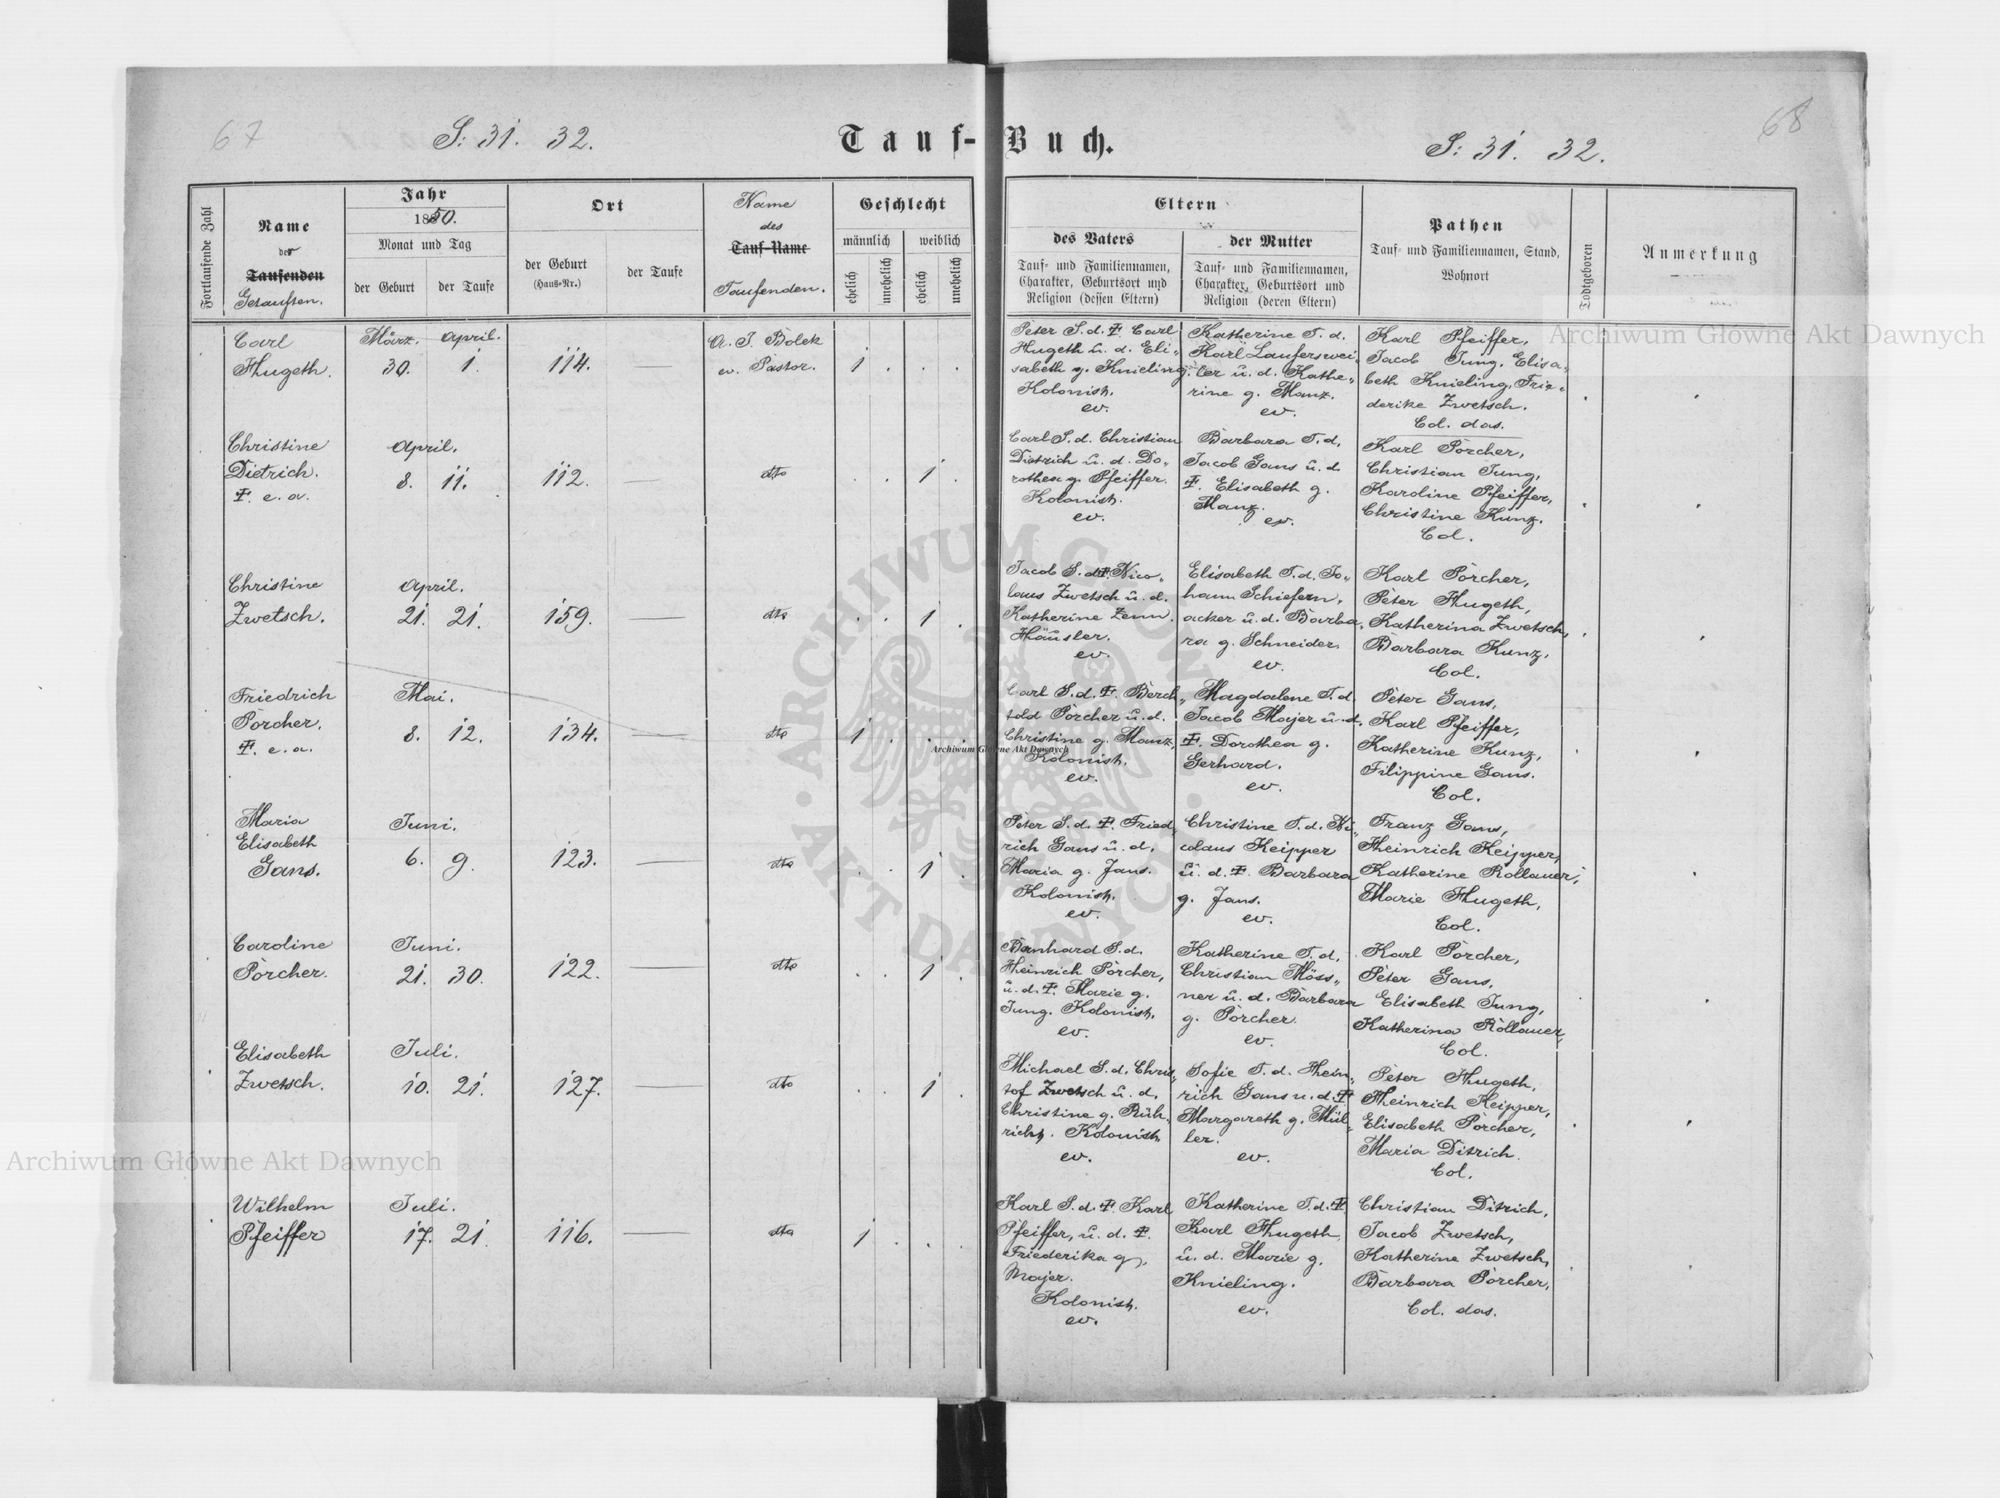 67
S: 31. 32.
Tauf-Buch.
S: 31. 32.
68
Fortlaufende Zahl
Name
der
Taufenden
Getauften.
Jahr
1850.
Monat und Tag
der Geburt
der Taufe
Ort
der Geburt
(Haus-Nr.)
der Taufe
Name
des
Tauf-Name
Taufenden.
Geschlecht
männlich
weiblich
ehelich
unehelich
ehelich
unehelich
Eltern
des Vaters
Tauf- und Familiennamen,
Charakter, Geburtsort und
Religion (dessen Eltern)
der Mutter
Tauf- und Familiennamen,
Charakter, Geburtsort und
Religion (deren Eltern)
Pathen
Tauf- und Familiennamen, Stand,
Wohnort
Todtgeboren
Anmerkung
Carl
Hugeth.
März. April.
30. 1.
114.
A. J. Bolek
ev. Pastor.
1
Peter S. d. Ɨ Carl
Hugeth u. d. Eli-
sabeth g. Knieling.
Kolonist.
ev.
Katherine T. d.
Karl Lauferswei-
ler u. d. Kathe-
rine g. Manz.
ev.
Karl Pfeiffer,
Jacob Jung, Elisa-
beth Knieling, Frie-
derike Zwetsch.
Col. das.
Christine
Dietrich.
Ɨ. e. a.
April.
8. 11.
112.
dto
1
Carl S. d. Christian
Dietrich u. d. Do-
rothea g. Pfeiffer.
Kolonist.
ev.
Barbara T. d.
Jacob Gans u. d.
Ɨ. Elisabeth g.
Manz.
ev.
Karl Porcher,
Christian Jung,
Karoline Pfeiffer,
Christine Kunz.
Col.
Christine
Zwetsch.
April.
21. 21.
159.
dto
1
Jacob S. d. Ɨ. Nico-
laus Zwetsch u. d.
Katherine Zenn.
Häusler.
ev.
Elisabeth T. d. Jo-
hann Schiefern-
acker u. d. Barba-
ra g. Schneider.
ev.
Karl Porcher,
Peter Hugeth,
Katherina Zwetsch,
Barbara Kunz.
Col.
Friedrich
Porcher.
Ɨ. e. a.
Mai.
8. 12.
134.
dto
1
Carl S. d. Ɨ. Berch-
told Porcher u. d.
Christine g. Manz,
Kolonist.
ev.
Magdalene T. d.
Jacob Majer u. d.
Ɨ. Dorothea g.
Gerhard.
ev.
Peter Gans,
Karl Pfeiffer,
Katherine Kunz,
Filippine Gans.
Col.
Maria
Elisabeth
Gans.
Juni.
6. 9.
123.
dto
1
Peter S. d. Ɨ. Fried-
rich Gans u. d.
Maria g. Jans.
Kolonist.
ev.
Christine T. d. Ni-
colaus Keipper
u. d. Ɨ. Barbara
g. Jans.
ev.
Franz Gans,
Heinrich Keipper,
Katherine Rollauer,
Marie Hugeth,
Col.
Caroline
Porcher.
Juni.
21. 30.
122.
dto
1
Bernhard S. d.
Heinrich Porcher,
u. d. Ɨ. Marie g.
Jung. Kolonist.
ev.
Katherine T. d.
Christian Mäss-
ner u. d. Barbara
g. Porcher.
ev.
Karl Porcher,
Peter Gans,
Elisabeth Jung,
Katherina Rollauer,
Col.
Elisabeth
Zwetsch.
Juli.
10. 21.
127.
dto
1
Michael S. d. Chris-
tof Zwetsch u. d.
Christine g. Rüh-
richt. Kolonist
ev.
Sofie T. d. Hein-
rich Gans u. d. Ɨ
Margareth g. Mül-
ler.
ev.
Peter Hugeth,
Heinrich Keipper,
Elisabeth Porcher,
Maria Ditrich.
Col.
Wilhelm
Pfeiffer
Juli.
17. 21.
116.
dto
1
Karl S. d. Ɨ Karl
Pfeiffer, u. d. Ɨ.
Friederika g.
Majer.
Kolonist.
ev.
Katherine T. d. Ɨ
Karl Hugeth
u. d. Marie g.
Knieling.
ev.
Christian Ditrich,
Jacob Zwetsch,
Katherine Zwetsch,
Barbara Porcher,
Col. das.
Archiwum Główne Akt Dawnych
Archiwum Główne Akt Dawnych
Archiwum Główne Akt Dawnych
ARCHIWUM GŁÓWNE AKT DAWNYCH